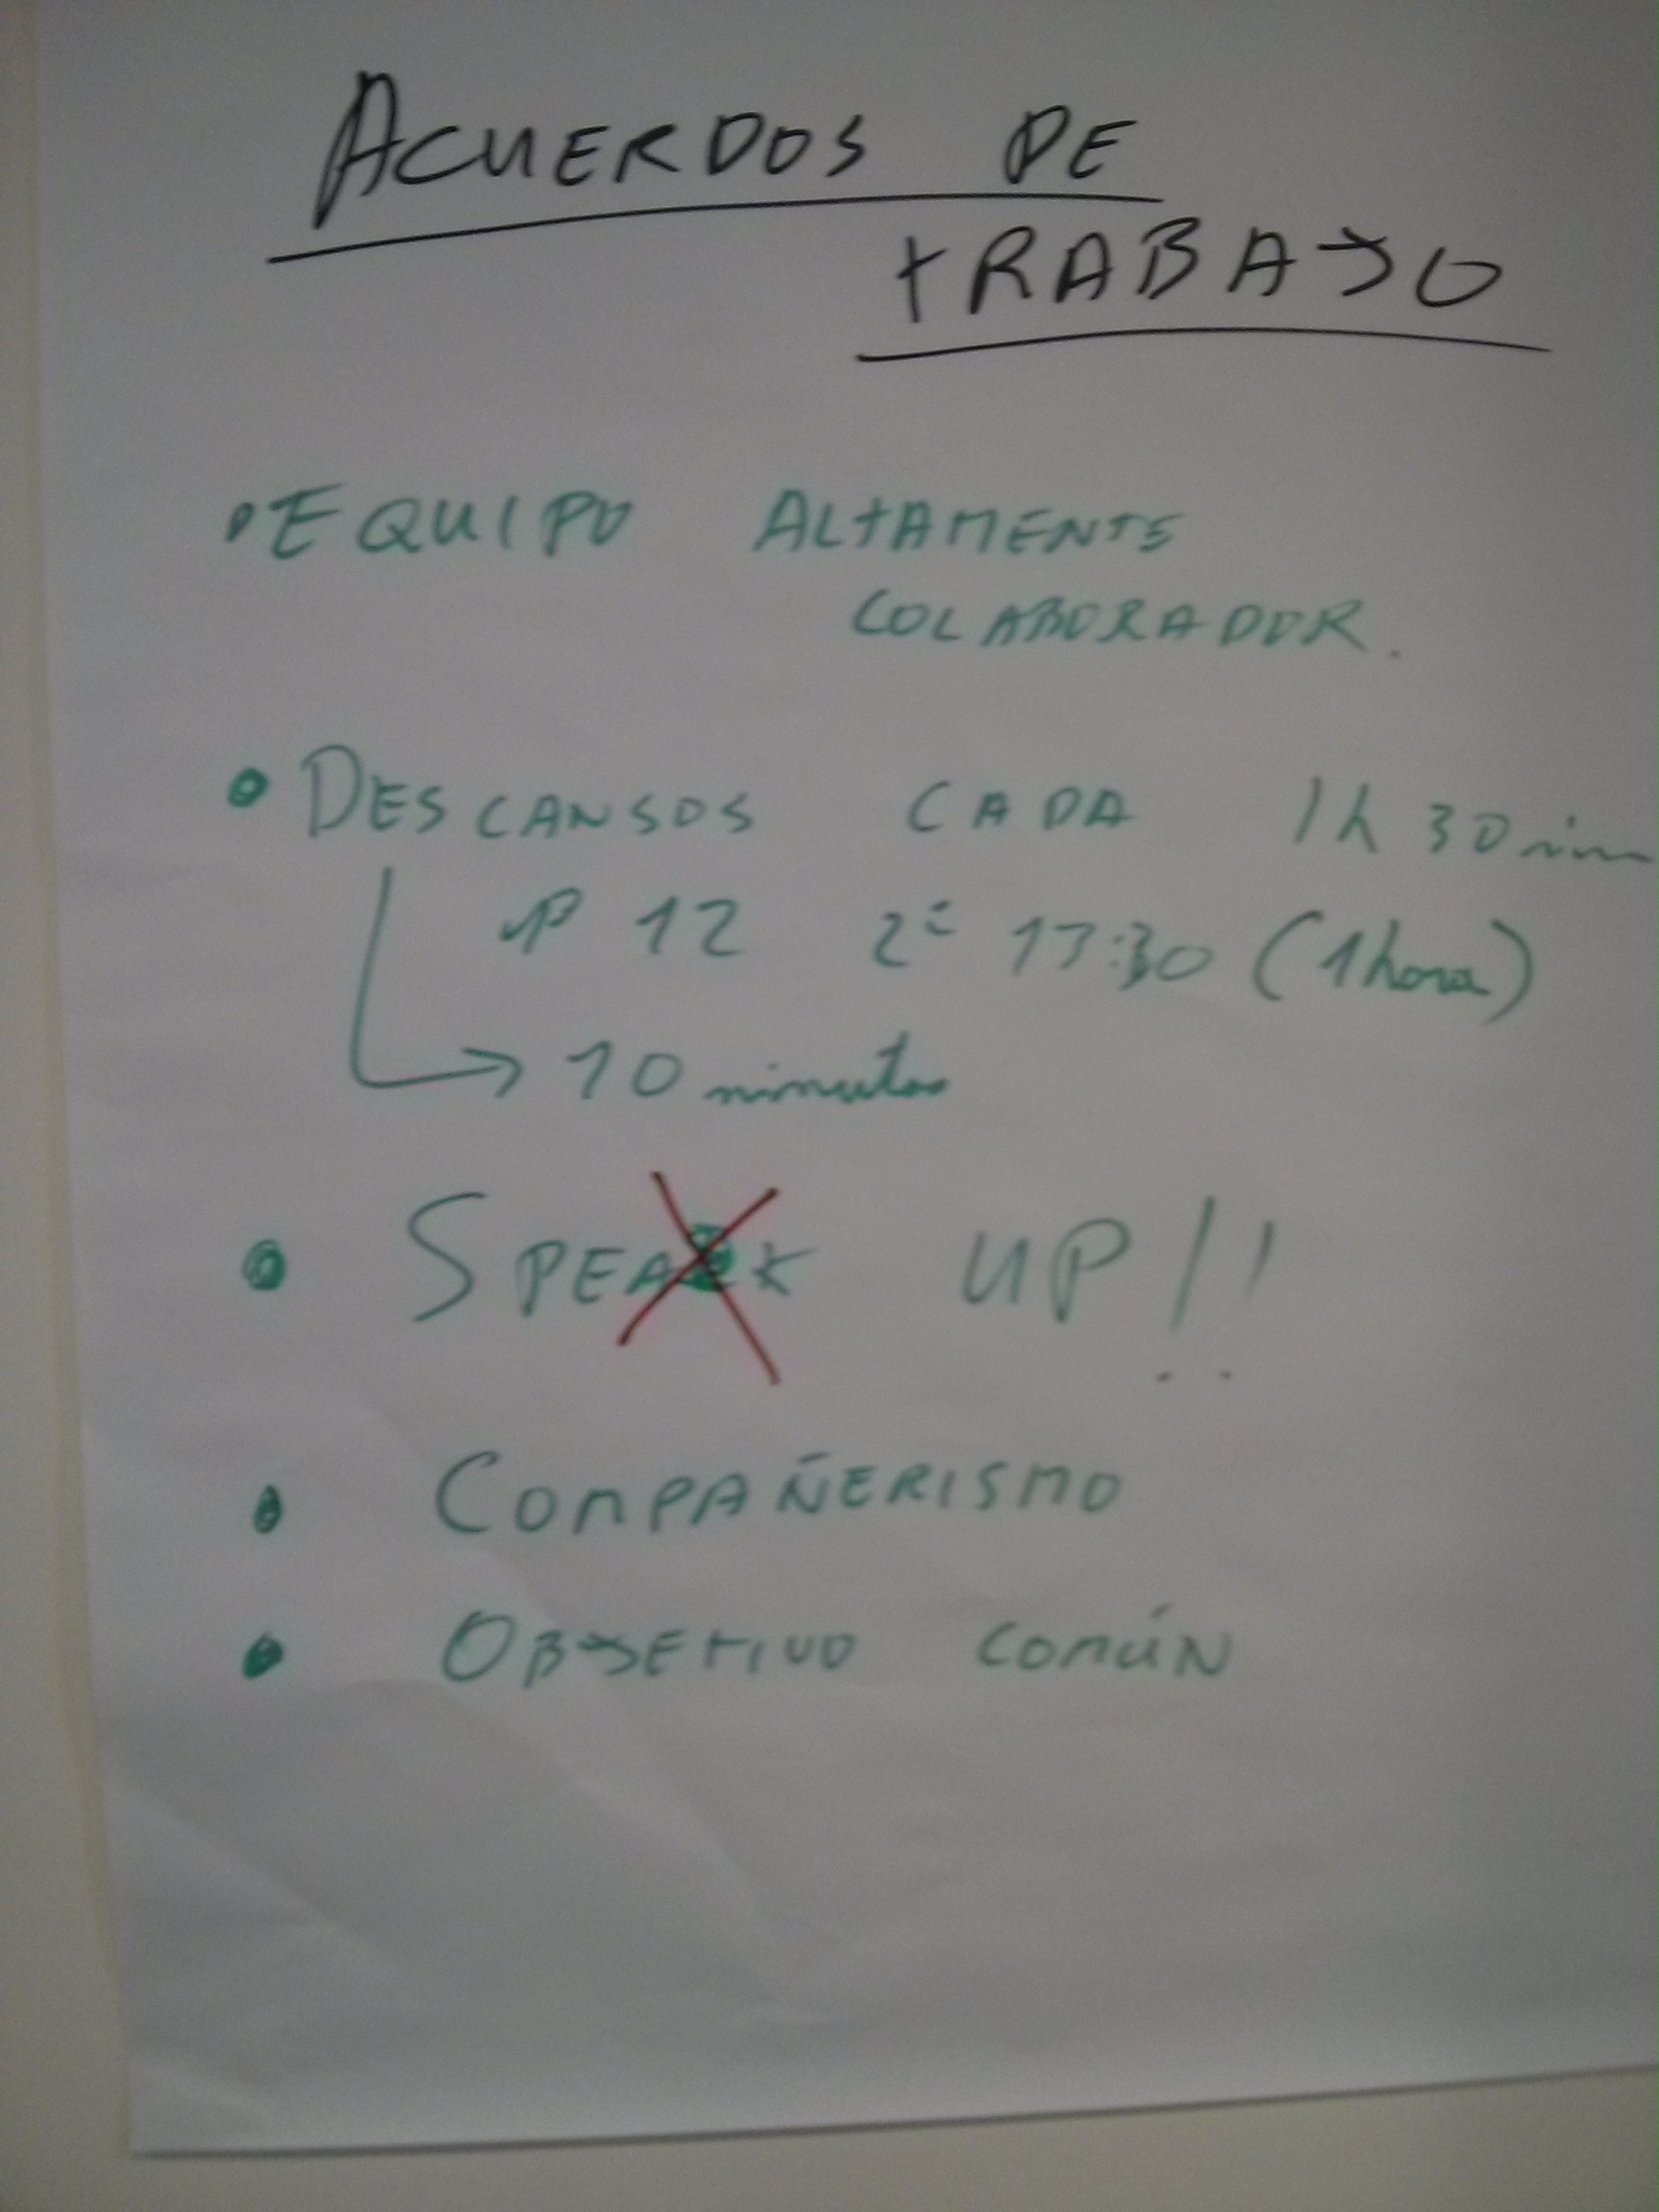 ACUERDOS DE
TRABAJO
• EQUIPO ALTAMENTE
COLABORADOR.
• DESCANSOS CADA 1h 30 min
12 2º :30 (1 hora)
→ 10 minutos
• SPEAK UP!!
• COMPAÑERISMO
• OBJETIVO COMÚN